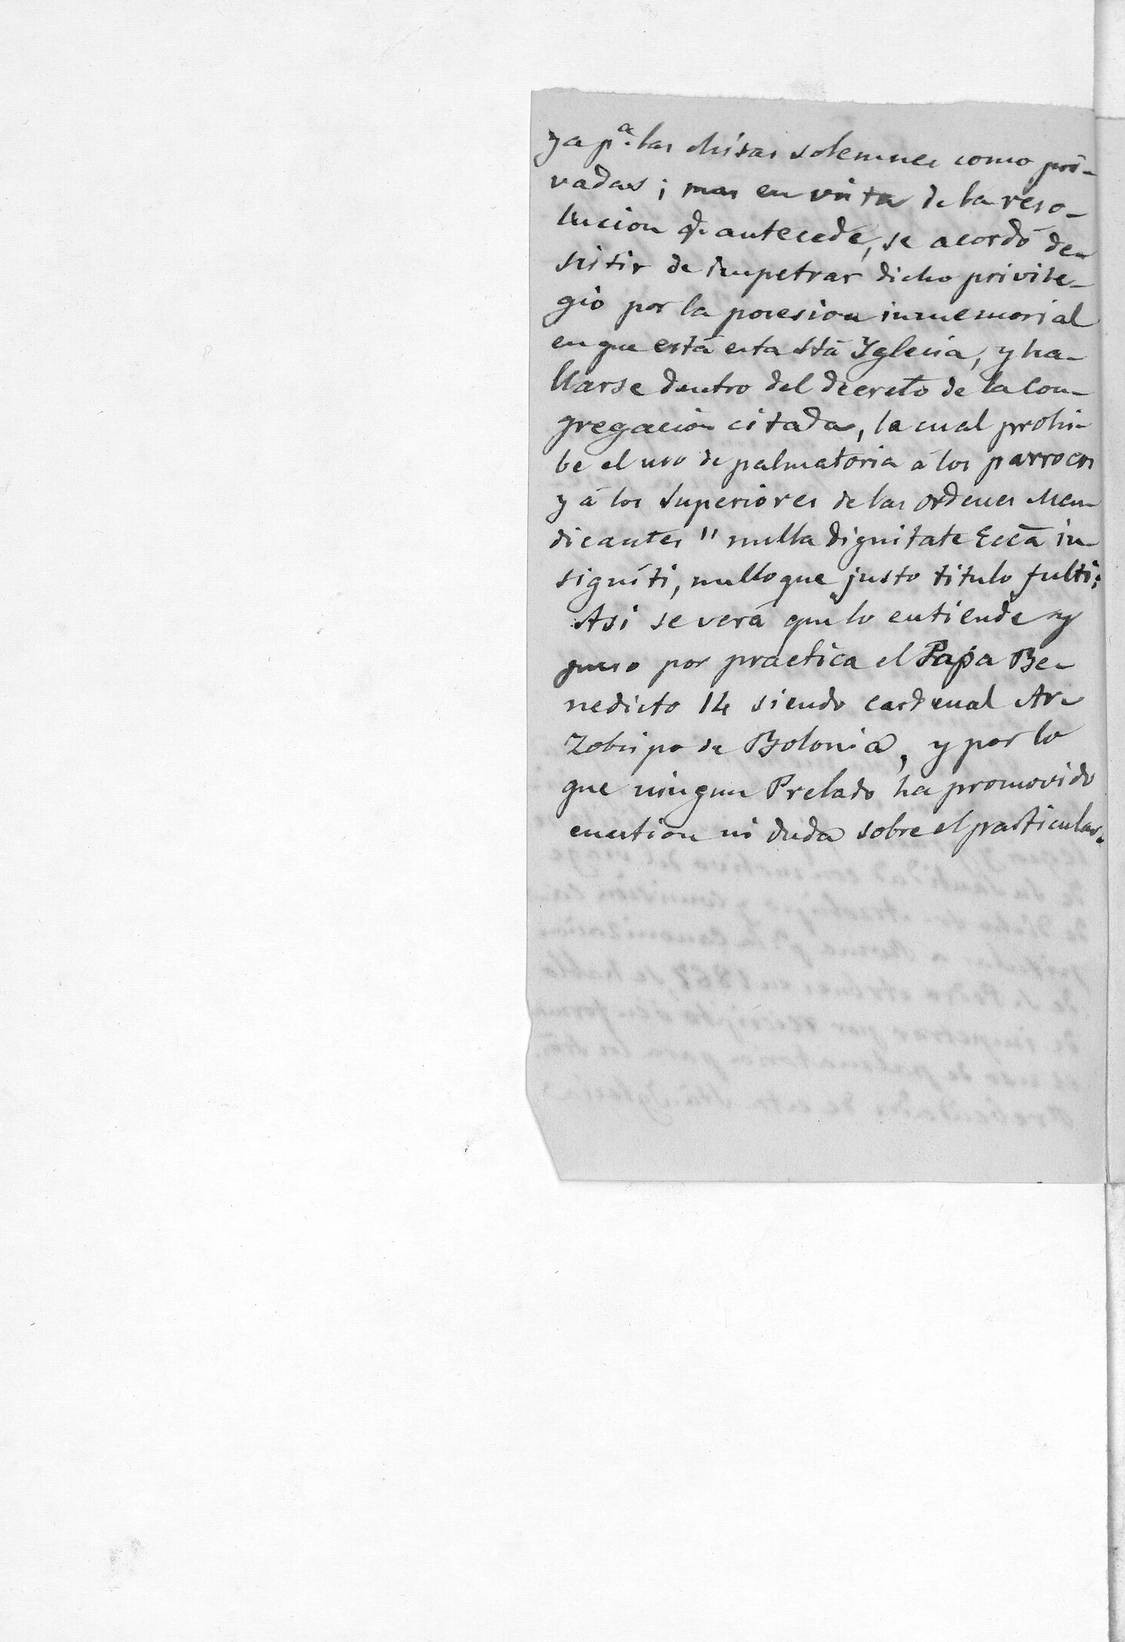 ya pª. las Misas solemnes como pri-
vadas; mas en vista de la reso-
lucion q. antecede, se acordó de-
sistir de impetrar dicho privile-
gio por la posesion inmemorial
en que está esta Stã Yglesia, y ha-
llarse dentro del decreto de la Con-
gregacion citada, la cual prohi-
be el uso de palmatoria á los parrocos
y á los Superiores de las ordenes Men-
dicantes " nulla dignitate Eccã in-
signiti, nulloque justo titulo fulti;
Asi se verá que lo entiende y
puso por practica el Papa Be-
nedicto 14 siendo cardenal Ar-
zobispo de Bolonia, y por lo
que ningun Prelado ha promovido
cuestion ni duda sobre el particular.